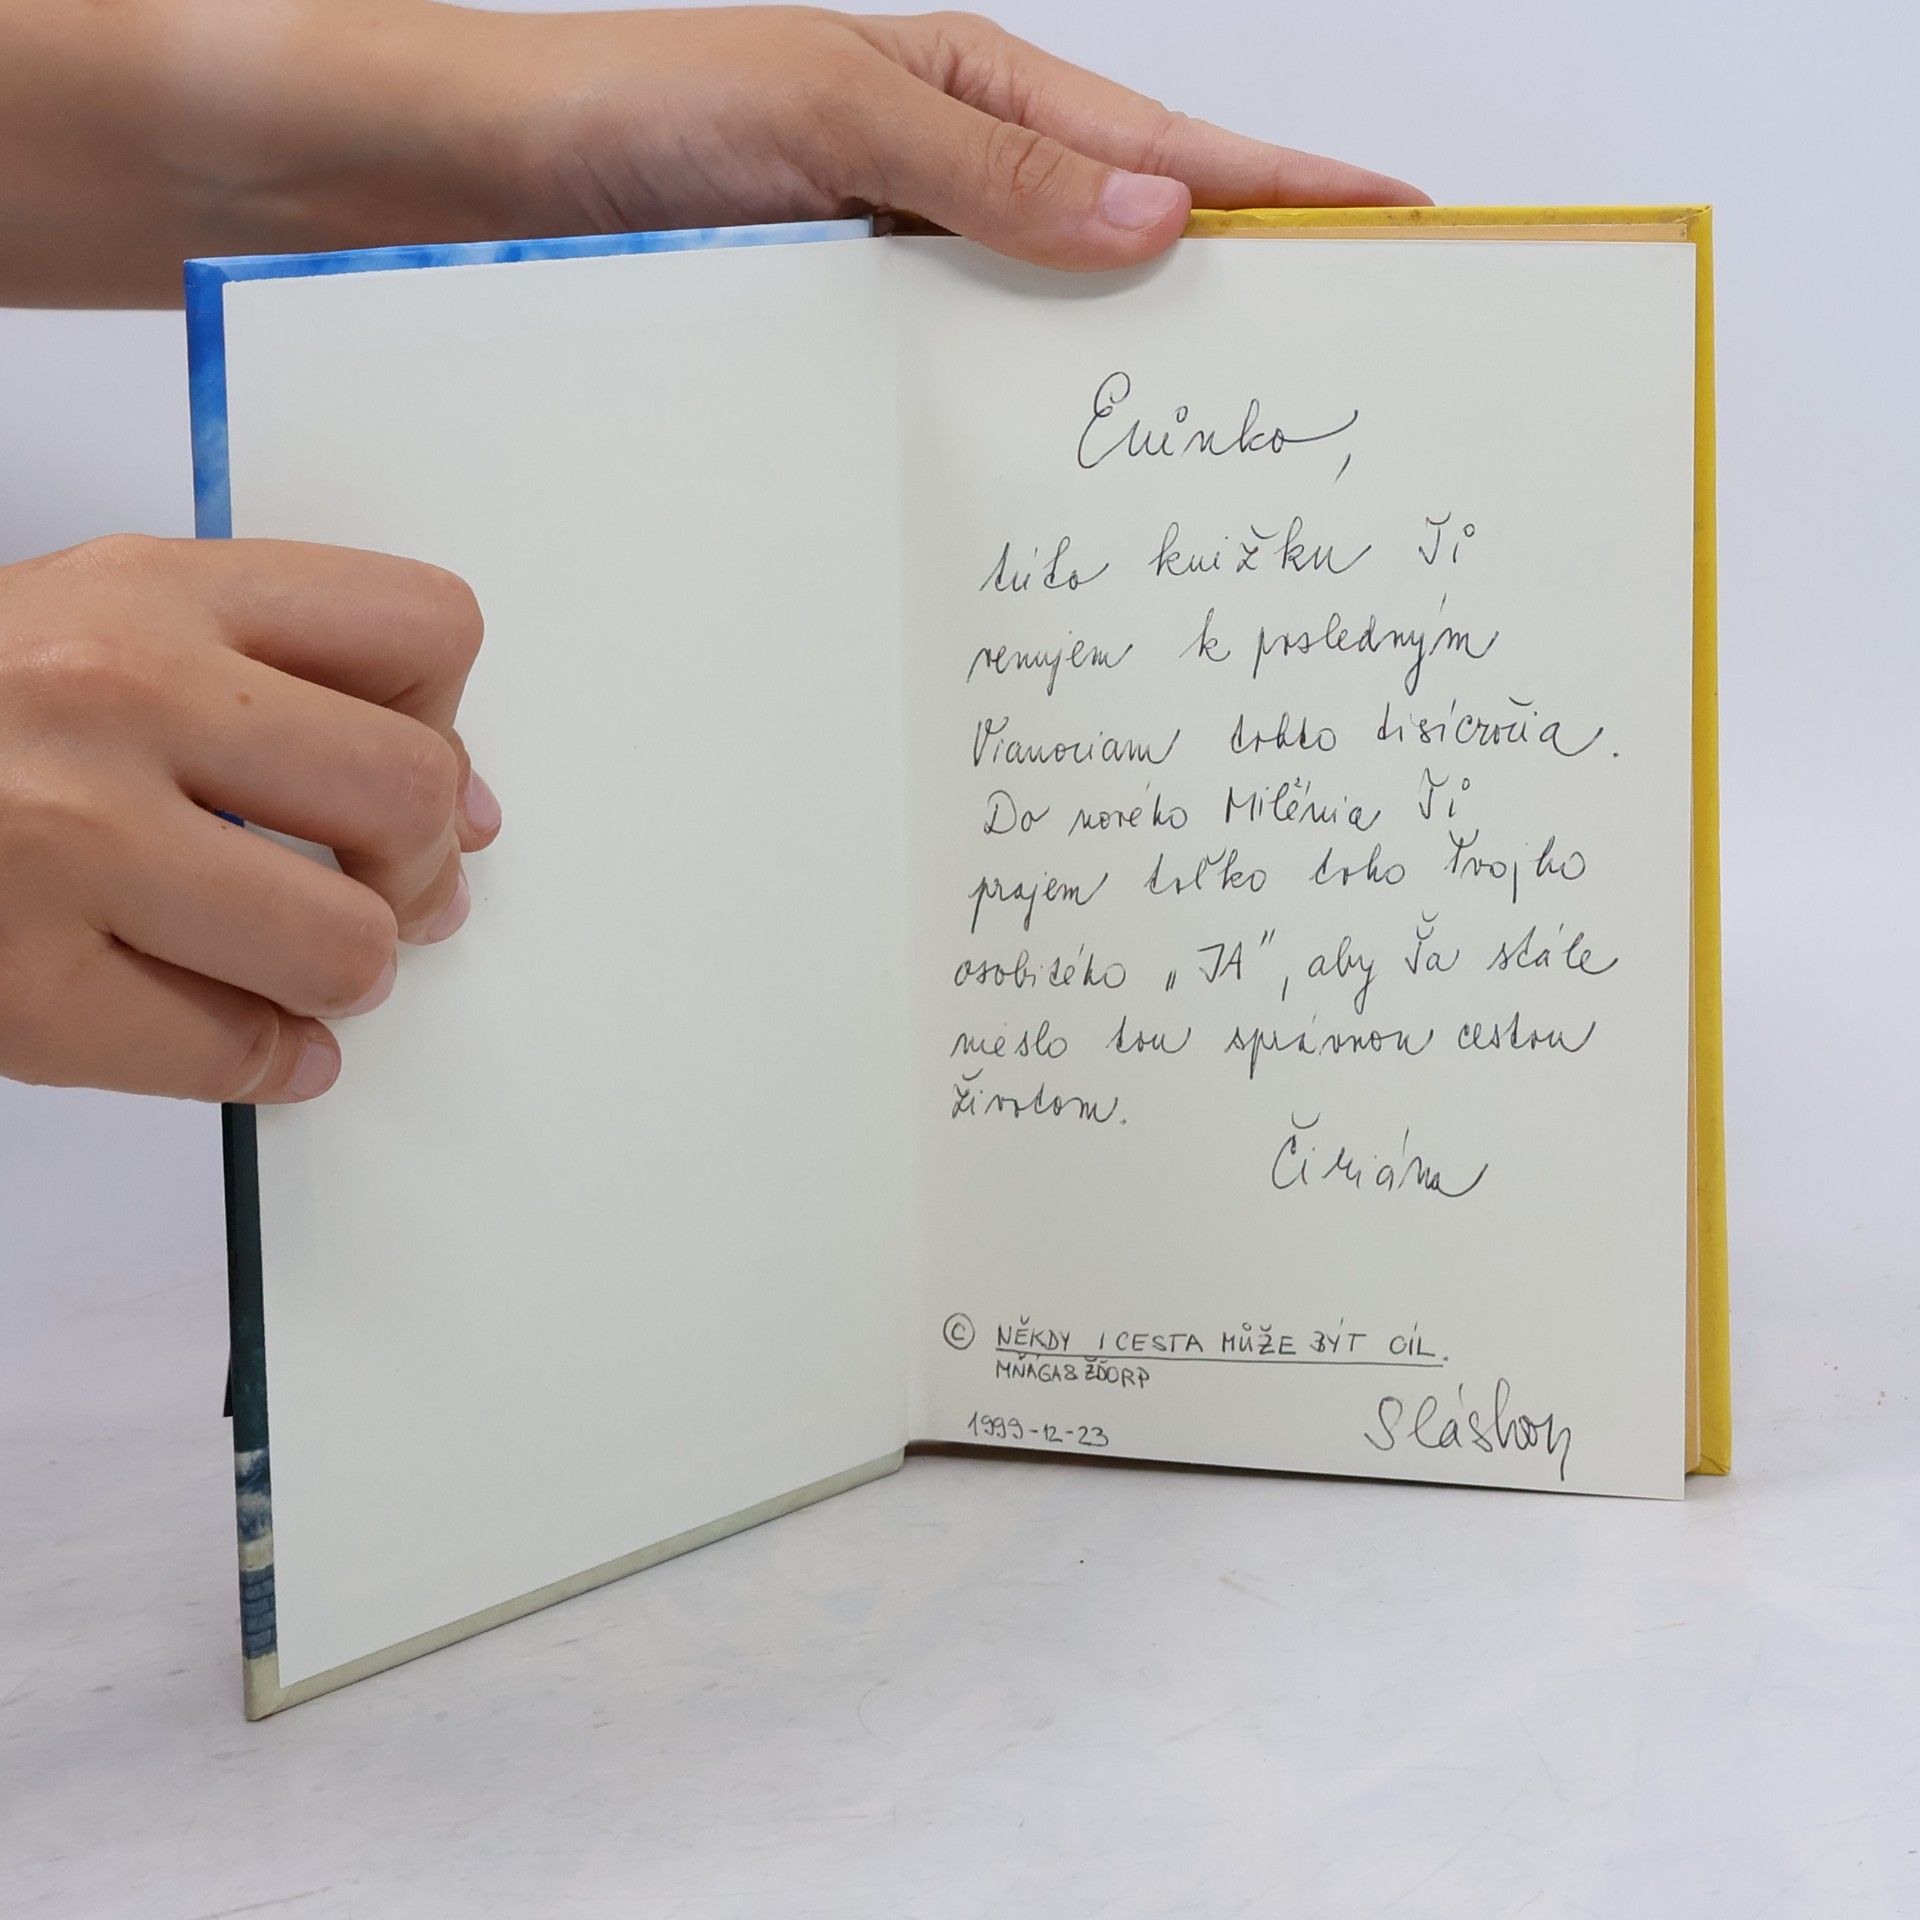 Evinko,
túto knižku Ti
venujem k posledným
Vianociam tohto tisícročia.
Do nového Milénia Ti
prajem toľko toho Tvojho
osobitého „JA“, aby Ťa stále
nieslo tou správnou cestou
životom.
© NĚKDY I CESTA MŮŽE BÝT CÍL.
MŇÁGA & ŽĎORP
1999-12-23